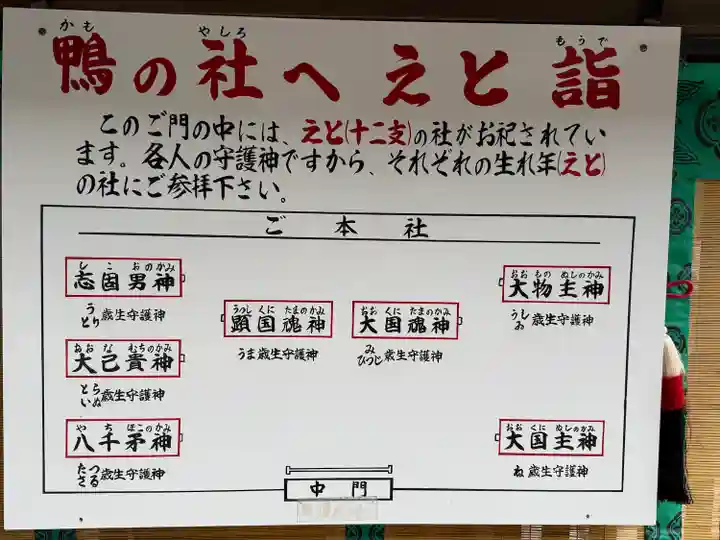 かも やしろ もうで
鴨の社へえと詣
このご門の中には、えと(十二支)の社がお祀されてい
ます。各人の守護神ですから、それぞれの生れ年(えと)
の社にご参拝下さい。
ご本社
しこおのかみ
志固男神
う
とり歳生守護神
おおなむちのかみ
大己貴神
とら
いぬ歳生守護神
やちほこのかみ
八千矛神
たつ
さる歳生守護神
うつしくにたまのかみ
顕国魂神
うま歳生守護神
おおくにたまのかみ
大国魂神
み
ひつじ歳生守護神
おおものぬしのかみ
大物主神
うし
ゐ歳生守護神
おおくにぬしのかみ
大国主神
ね歳生守護神
中門